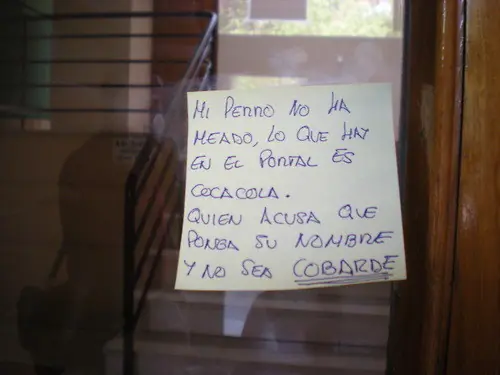 MI PERRO NO HA
MEADO, LO QUE HAY
EN EL PORTAL ES
COCACOLA.
QUIEN ACUSA QUE
PONGA SU NOMBRE
Y NO SEA COBARDE